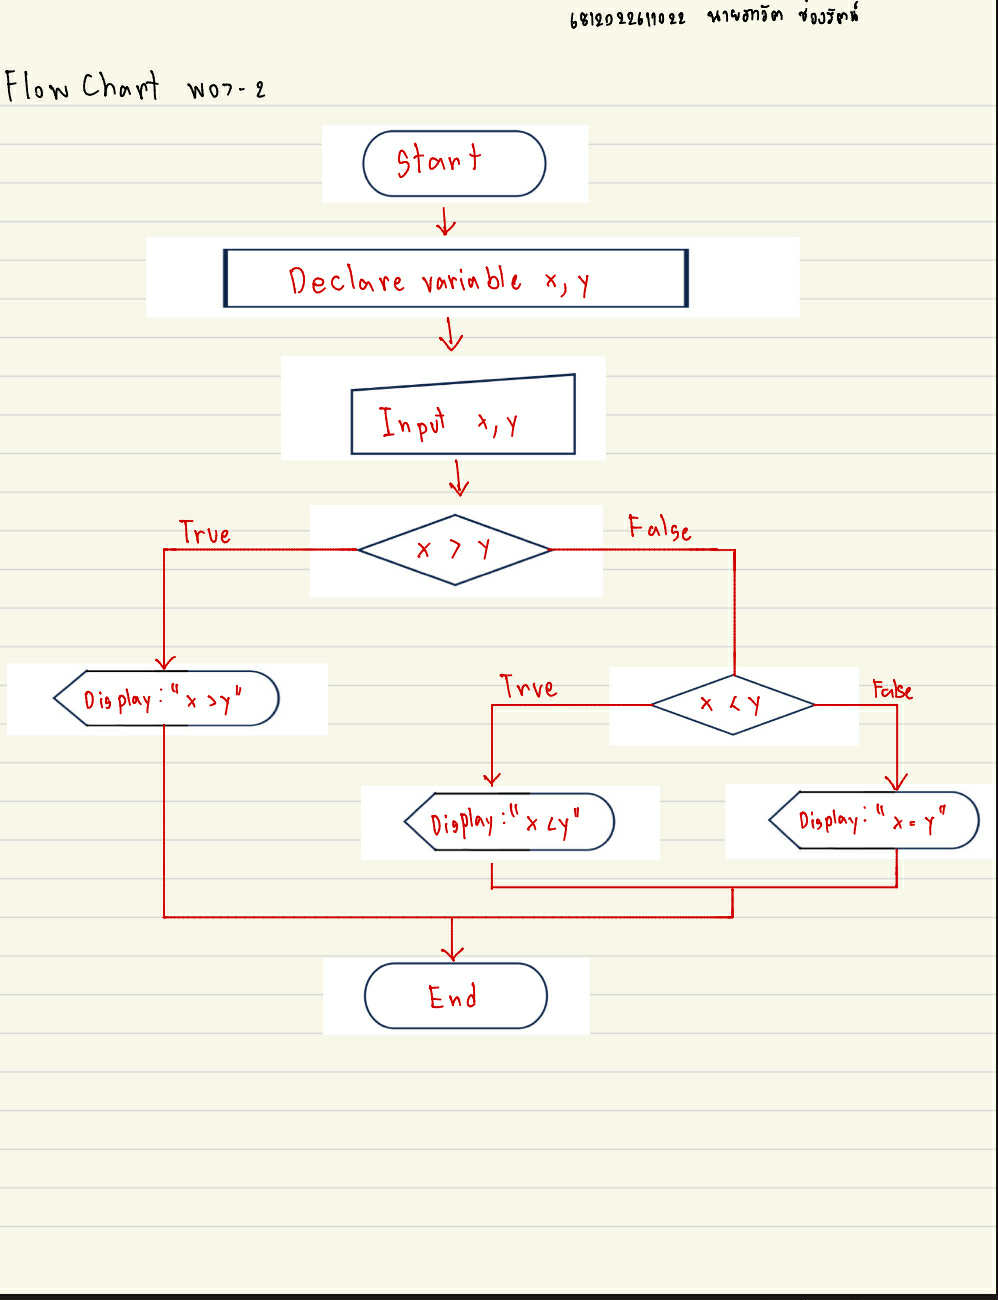 6812022611022 นายภาวิต ช่องรัตน์
Flow Chart W07-2
Start
Declare variable x, y
Input x, y
True
x > y
False
Display: "x > y"
True
x < y
False
Display: "x < y"
Display: "x = y"
End